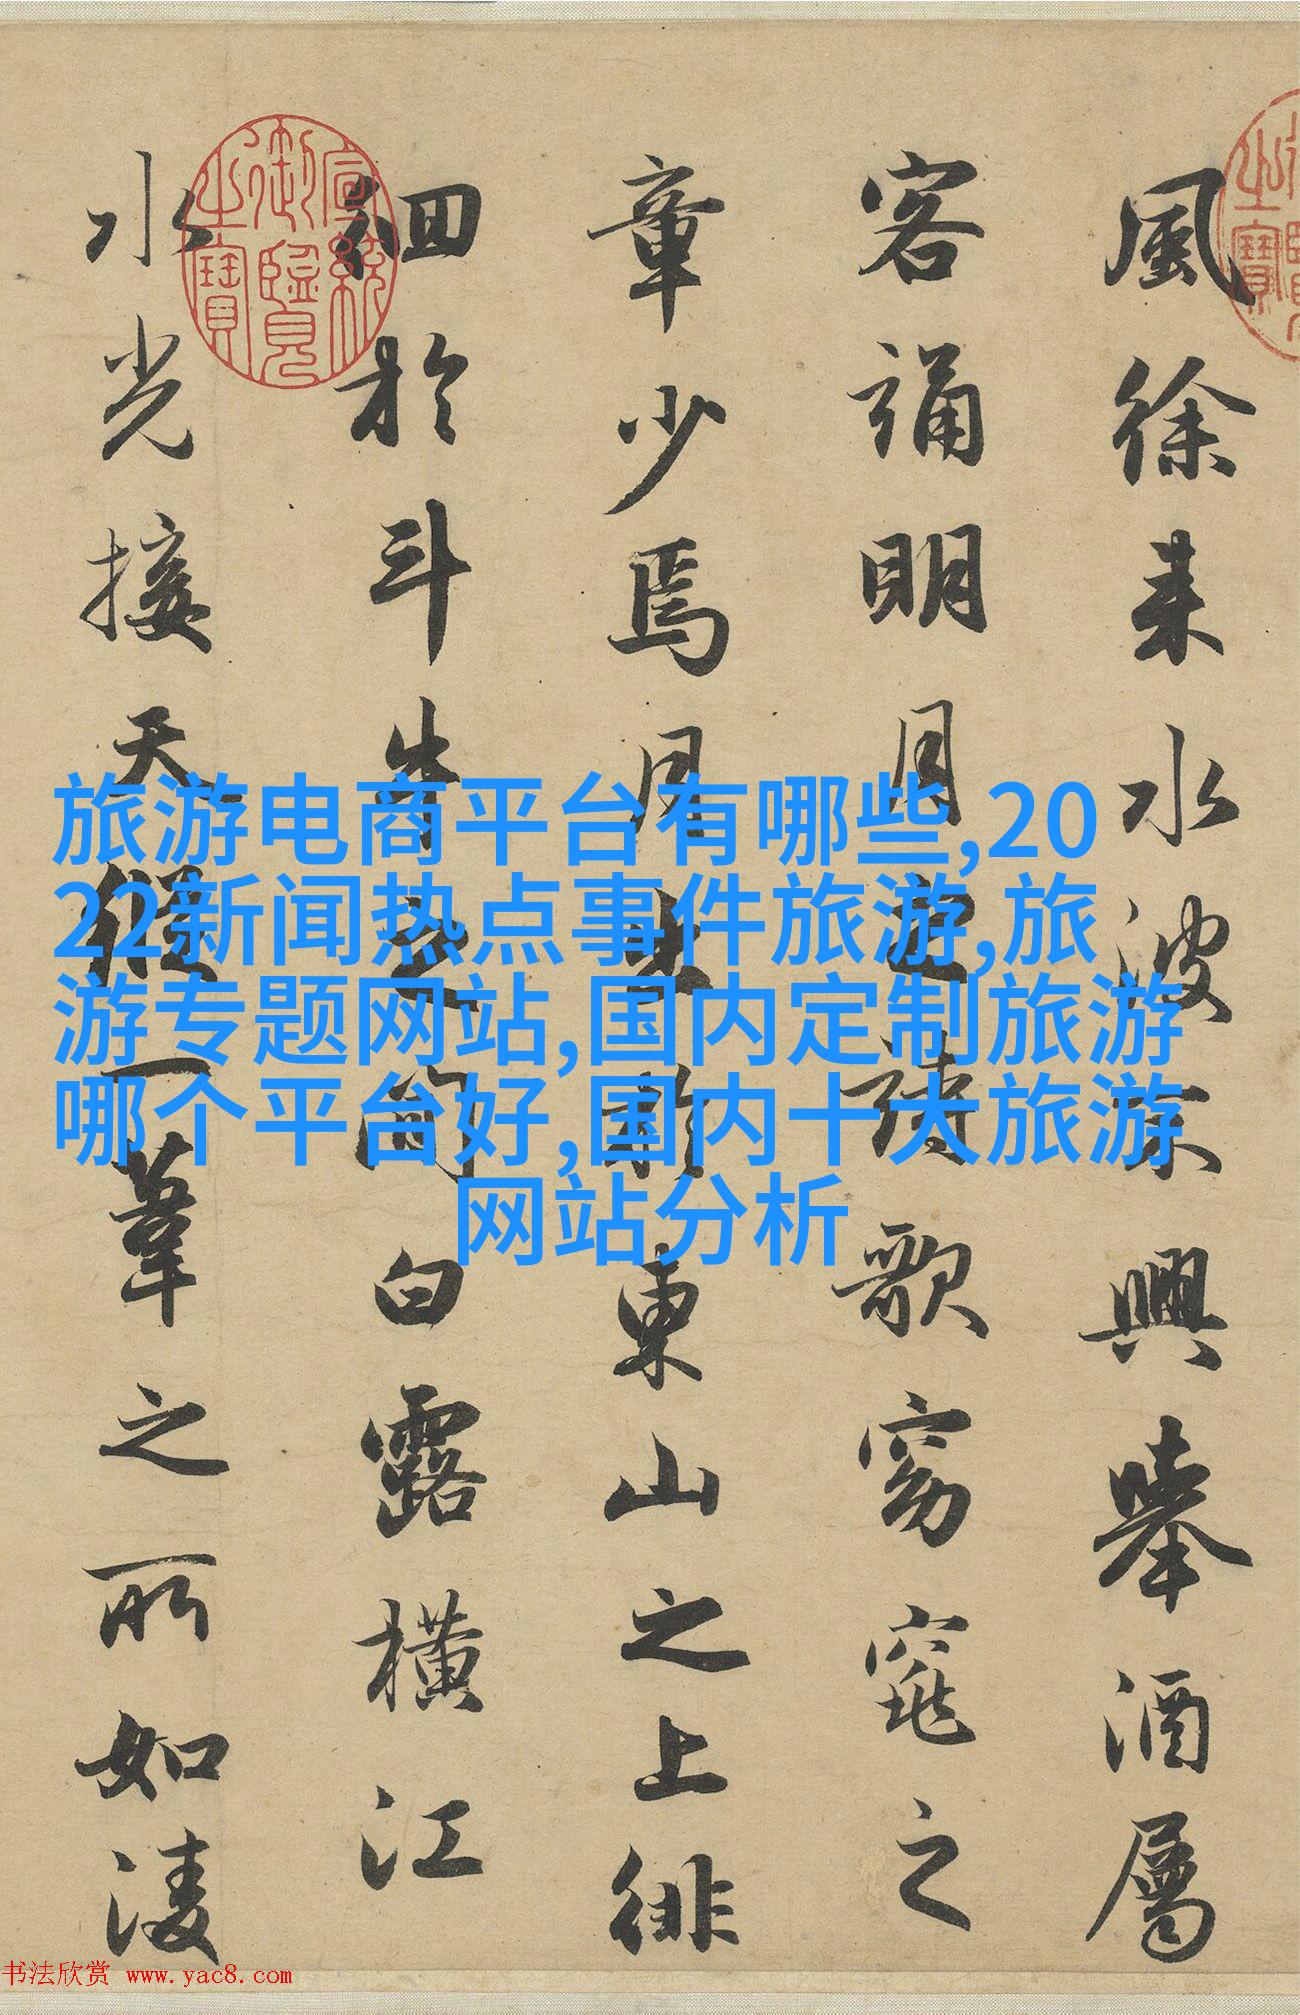 風徐来水波不興舉酒屬
客誦明月之詩歌窈窕之
章少焉月出於東山之上徘
徊於斗牛之間白露橫江
水光接天縱一葦之所如淩
宣統御覽之寶
旅游电商平台有哪些,20
22新闻热点事件旅游,旅
游专题网站,国内定制旅游
哪个平台好,国内十大旅游
网站分析
书法欣赏 www.yac8.com